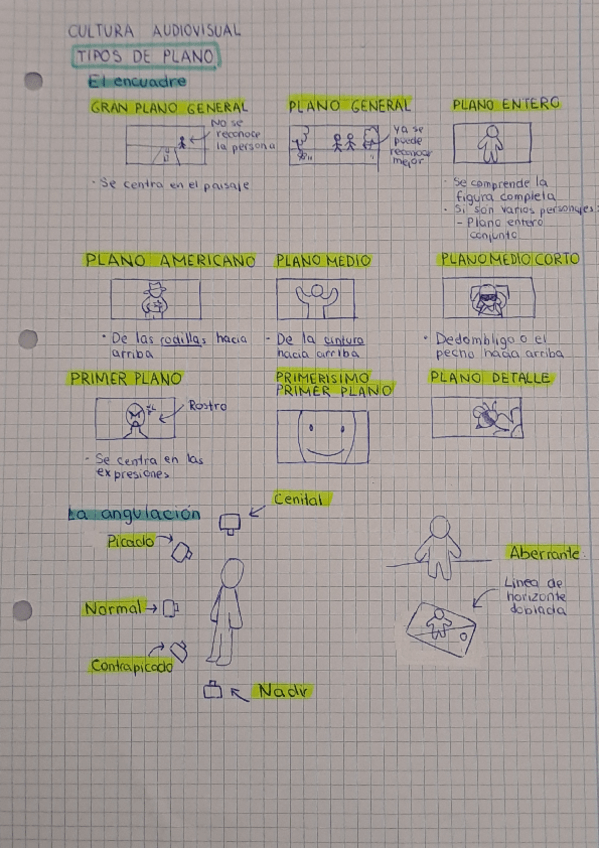 CULTURA AUDIOVISUAL
TIPOS DE PLANO
El encuadre
GRAN PLANO GENERAL
No se
reconoce
la persona
• Se centra en el paisaje
PLANO GENERAL
Ya se
puede
reconocer
mejor
PLANO ENTERO
• Se comprende la
figura completa
• Si son varios personajes:
- Plano entero
conjunto
PLANO AMERICANO
• De las rodillas hacia
arriba
PLANO MEDIO
• De la cintura
hacia arriba
PLANO MEDIO CORTO
• Dedombligo o el
pecho hacia arriba
PRIMER PLANO
Rostro
• Se centra en las
expresiones
PRIMERISIMO
PRIMER PLANO
PLANO DETALLE
La angulación
Cenital
Picado
Normal
Contrapicado
Nadir
Aberrante
Linea de
horizonte
doblada